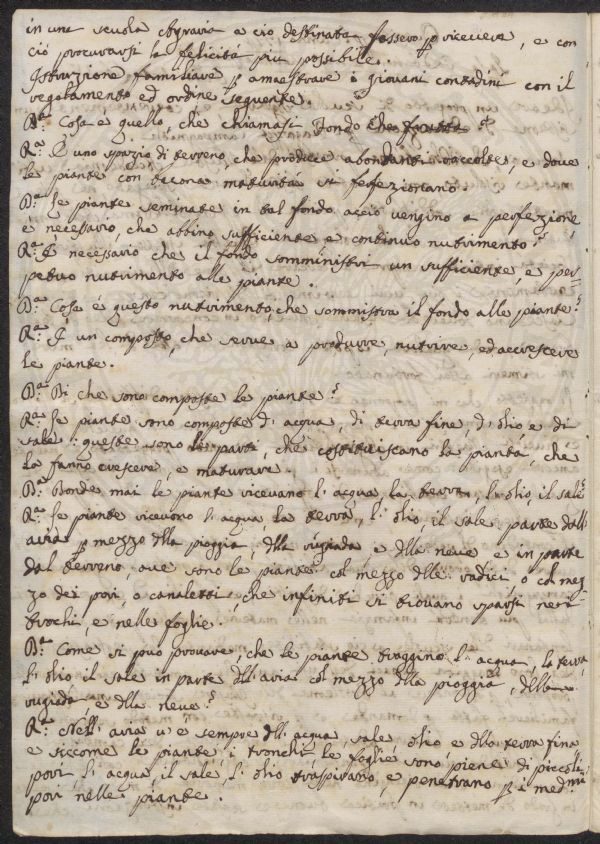 in una scuola Agraria a ciò destinata fossero p ricevere, e con
ciò procurarsi la felicità più possibile.
Istruzione familiare p amaestrare i giovani contadini con il
regolamento ed ordine seguente.
Da: Cosa è quello, che chiamasi Fondo che frutta?
Ra: È uno spazio di terreno, che produce abondanti raccolte, e dove
le piante con buona maturità si perfezionano
Da: Le piante seminate in tal fondo acciò vengino a perfezione
è necessario, che abbino sufficiente e continuo nutrimento?
Ra: È necessario che il fondo somministri un sufficiente, e per=
petuo nutrimento alle piante.
Da: Cosa è questo nutrimento, che sommistra il fondo alle piante?
Ra: È un composto, che serve a produrre, nutrire, ed accrescere
le piante.
Da: Di che sono composte le piante?
Ra: Le piante sono composte d'acqua, di terra fine, d'olio e di
sale: queste sono le parti, che costituiscano la pianta, che
la fanno crescere, e maturare.
Da: Donde mai le piante ricevano l'acqua, la terra, l'olio, il sale?
Ra: Le piante ricevono l'acqua, la terra, l'olio, il sale parte dall'
aria p mezzo dlla pioggia, dlla rugiada e dlla neve e in parte
dal terreno, ove sono le piante col mezzo dlle radici, o col mez
zo dei pori, o canaletti, che infiniti si trovano sparsi nei
trochi, e nelle foglie.
Da: Come si può provare che le piante traggino l'acqua, la terra,
l'olio il sale in parte dll'aria col mezzo dlla pioggia, della
rugiada, e dlla neve?
Ra: Nell'aria v'è sempre dll'acqua, sale olio e dlla terra fina
e siccome le piante i tronchi le foglie sono piene di piccoli
pori l'acqua, il sale, l'olio traspirano, e penetrano p i medmi
pori nelle piante.